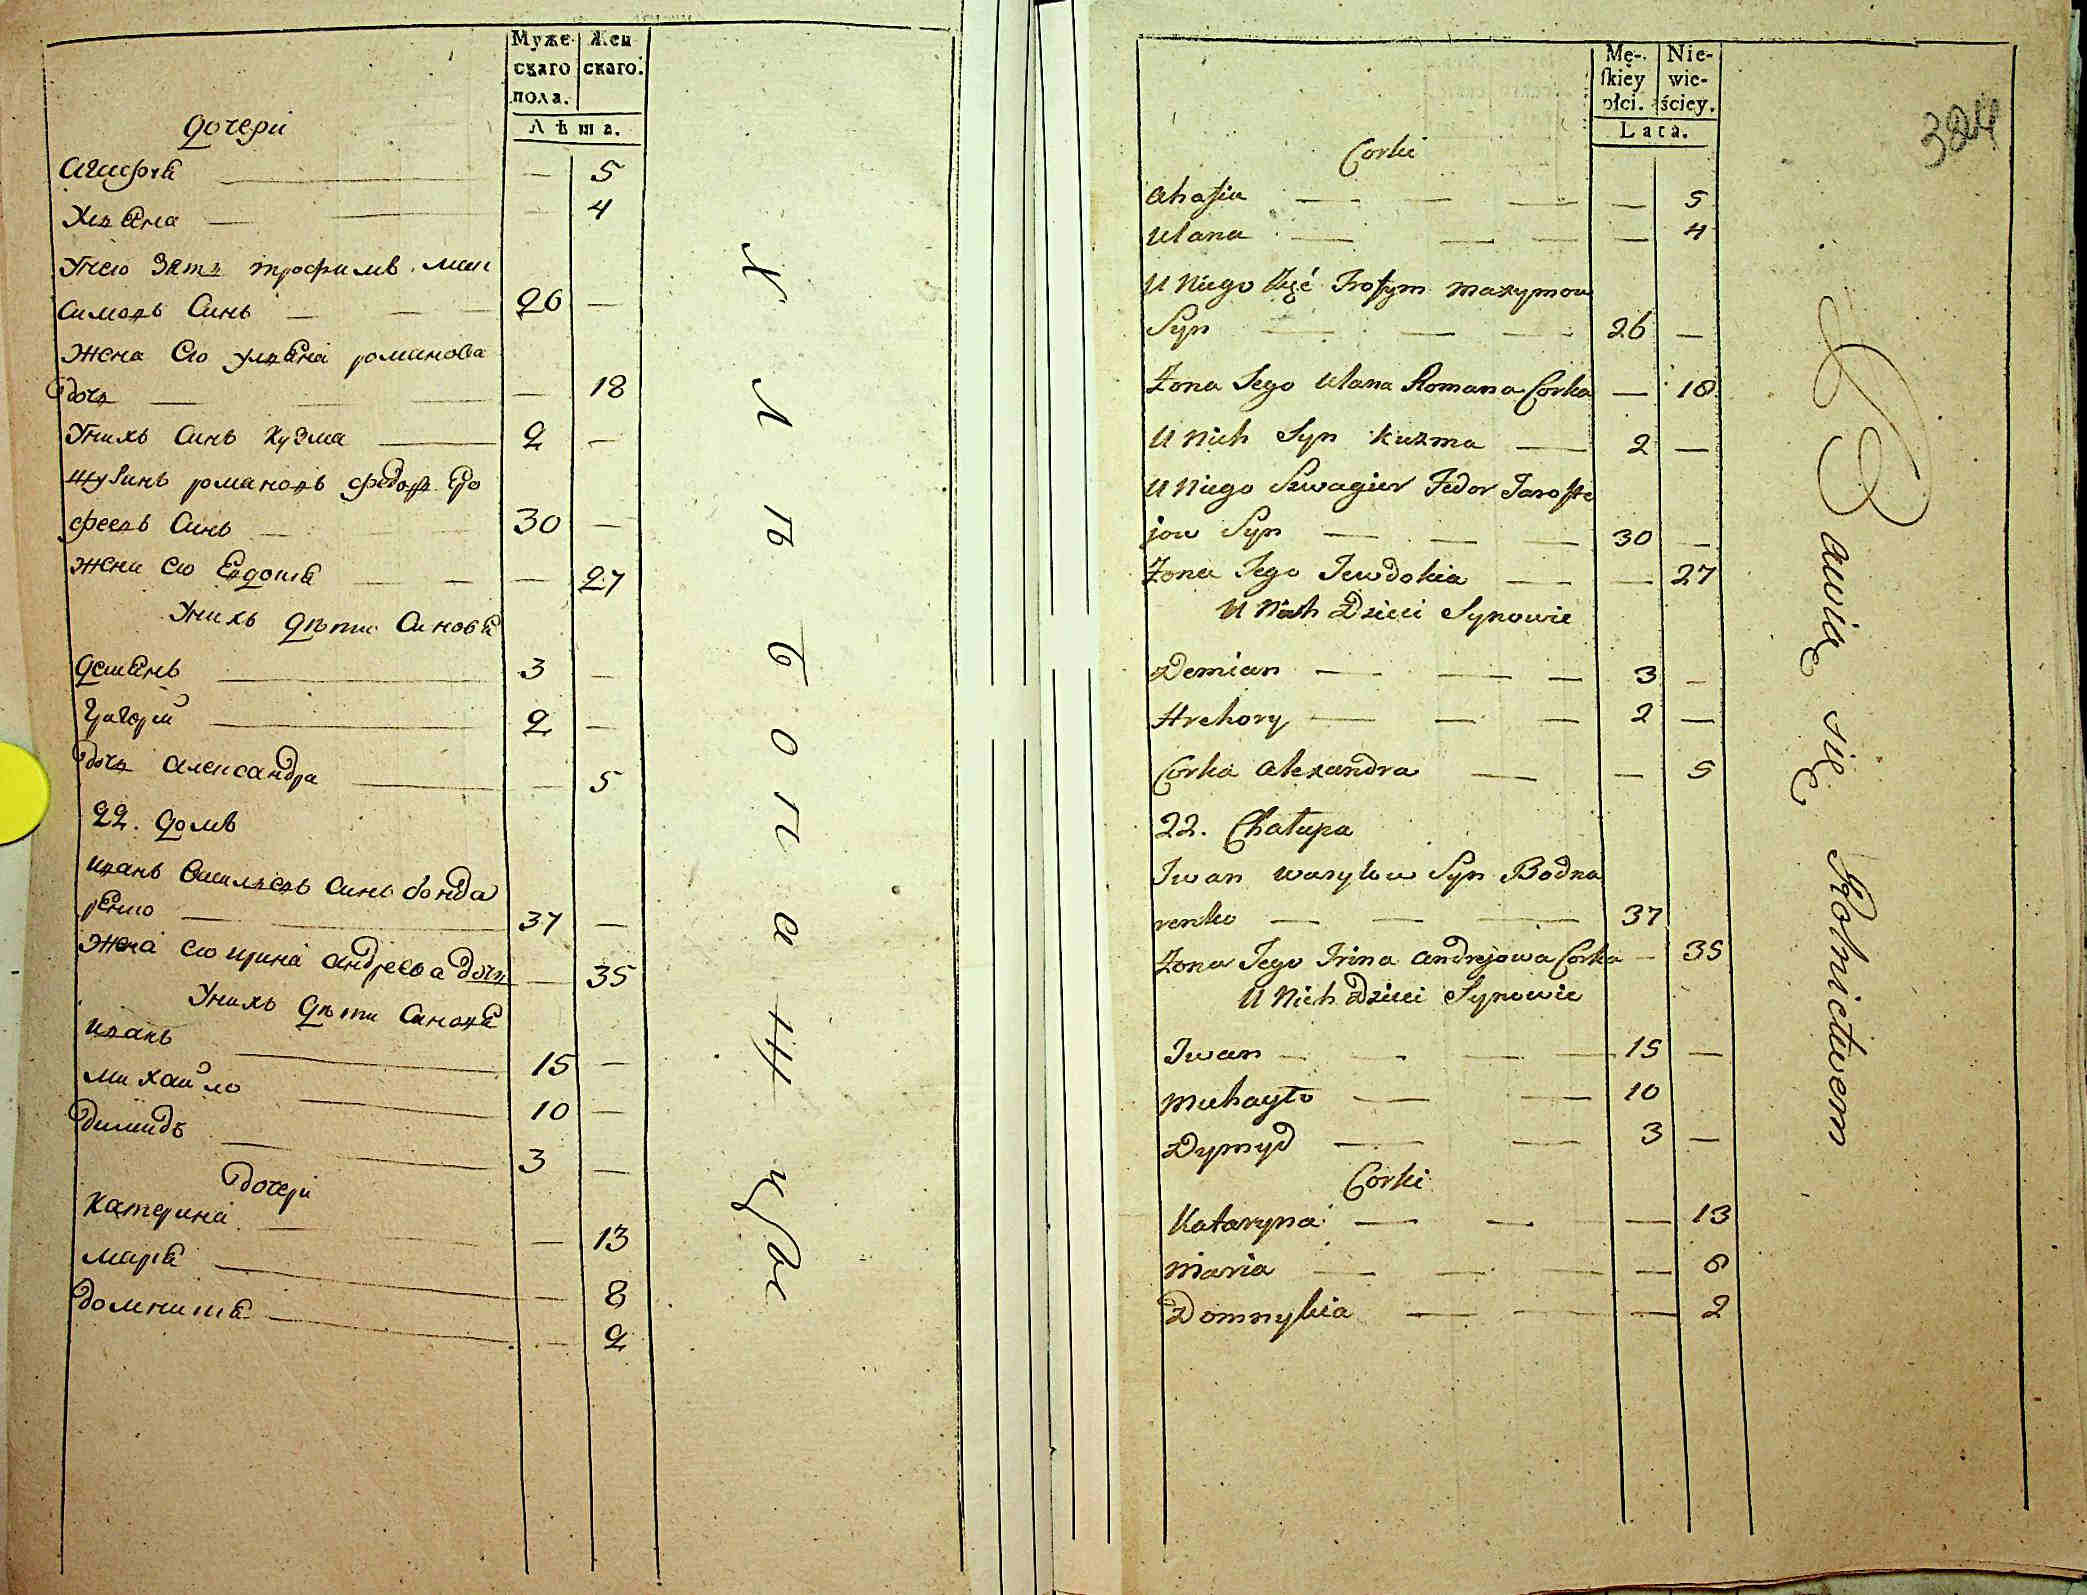 Муже- Жен
скаго скаго.
пола.
Лѣта.
дочери
Агафія — 5
Улвяна — 4
Унего Зять трофимъ Мак
симовъ Синъ — 26 —
Жена Его Улвяна романова
дочь — 18
Унихъ Синъ Кузма — 2 —
Шуринъ романовъ федоръ Еро
феевъ Синъ — 30 —
Жена Его Евдокия — 27
Унихъ дѣти Синовя
демянъ — 3 —
Григорій — 2 —
дочь Александра — 5
22. домъ
Иванъ Василевъ Синъ бонда
ренко — 37 —
Жена Его Ирина Андреева дочь — 35
Унихъ дѣти Синовя
Иванъ — 15 —
Михайло — 10 —
димидъ — 3 —
дочери
Катерина — 13
Марія — 8
домникія — 2
Хлѣбопашцы
384
Mę- Nie-
skiey wie-
płci. ściey.
Lata.
Corki
Ahafia — 5
Ulana — 4
U Niego Zięć Trofym Maxymow
Syn — 26 —
Żona Jego Ulana Romana Corka — 18
U Nich Syn Kuzma — 2 —
U Niego Szwagier Fedor Jarofie
jow Syn — 30 —
Żona Jego Jewdokia — 27
U Nich Dzieci Synowie
Demian — 3 —
Hrehory — 2 —
Corka Alexandra — 5
22. Chałupa
Iwan Wasylow Syn Bodna
renko — 37
Żona Jego Irina Andrejowa Corka — 35
U Nich Dzieci Synowie
Iwan — 15 —
Michayło — 10
Dymyd — 3 —
Corki
Kataryna — 13
Maria — 8
Domnykia — 2
Bawią się Rolnictwem